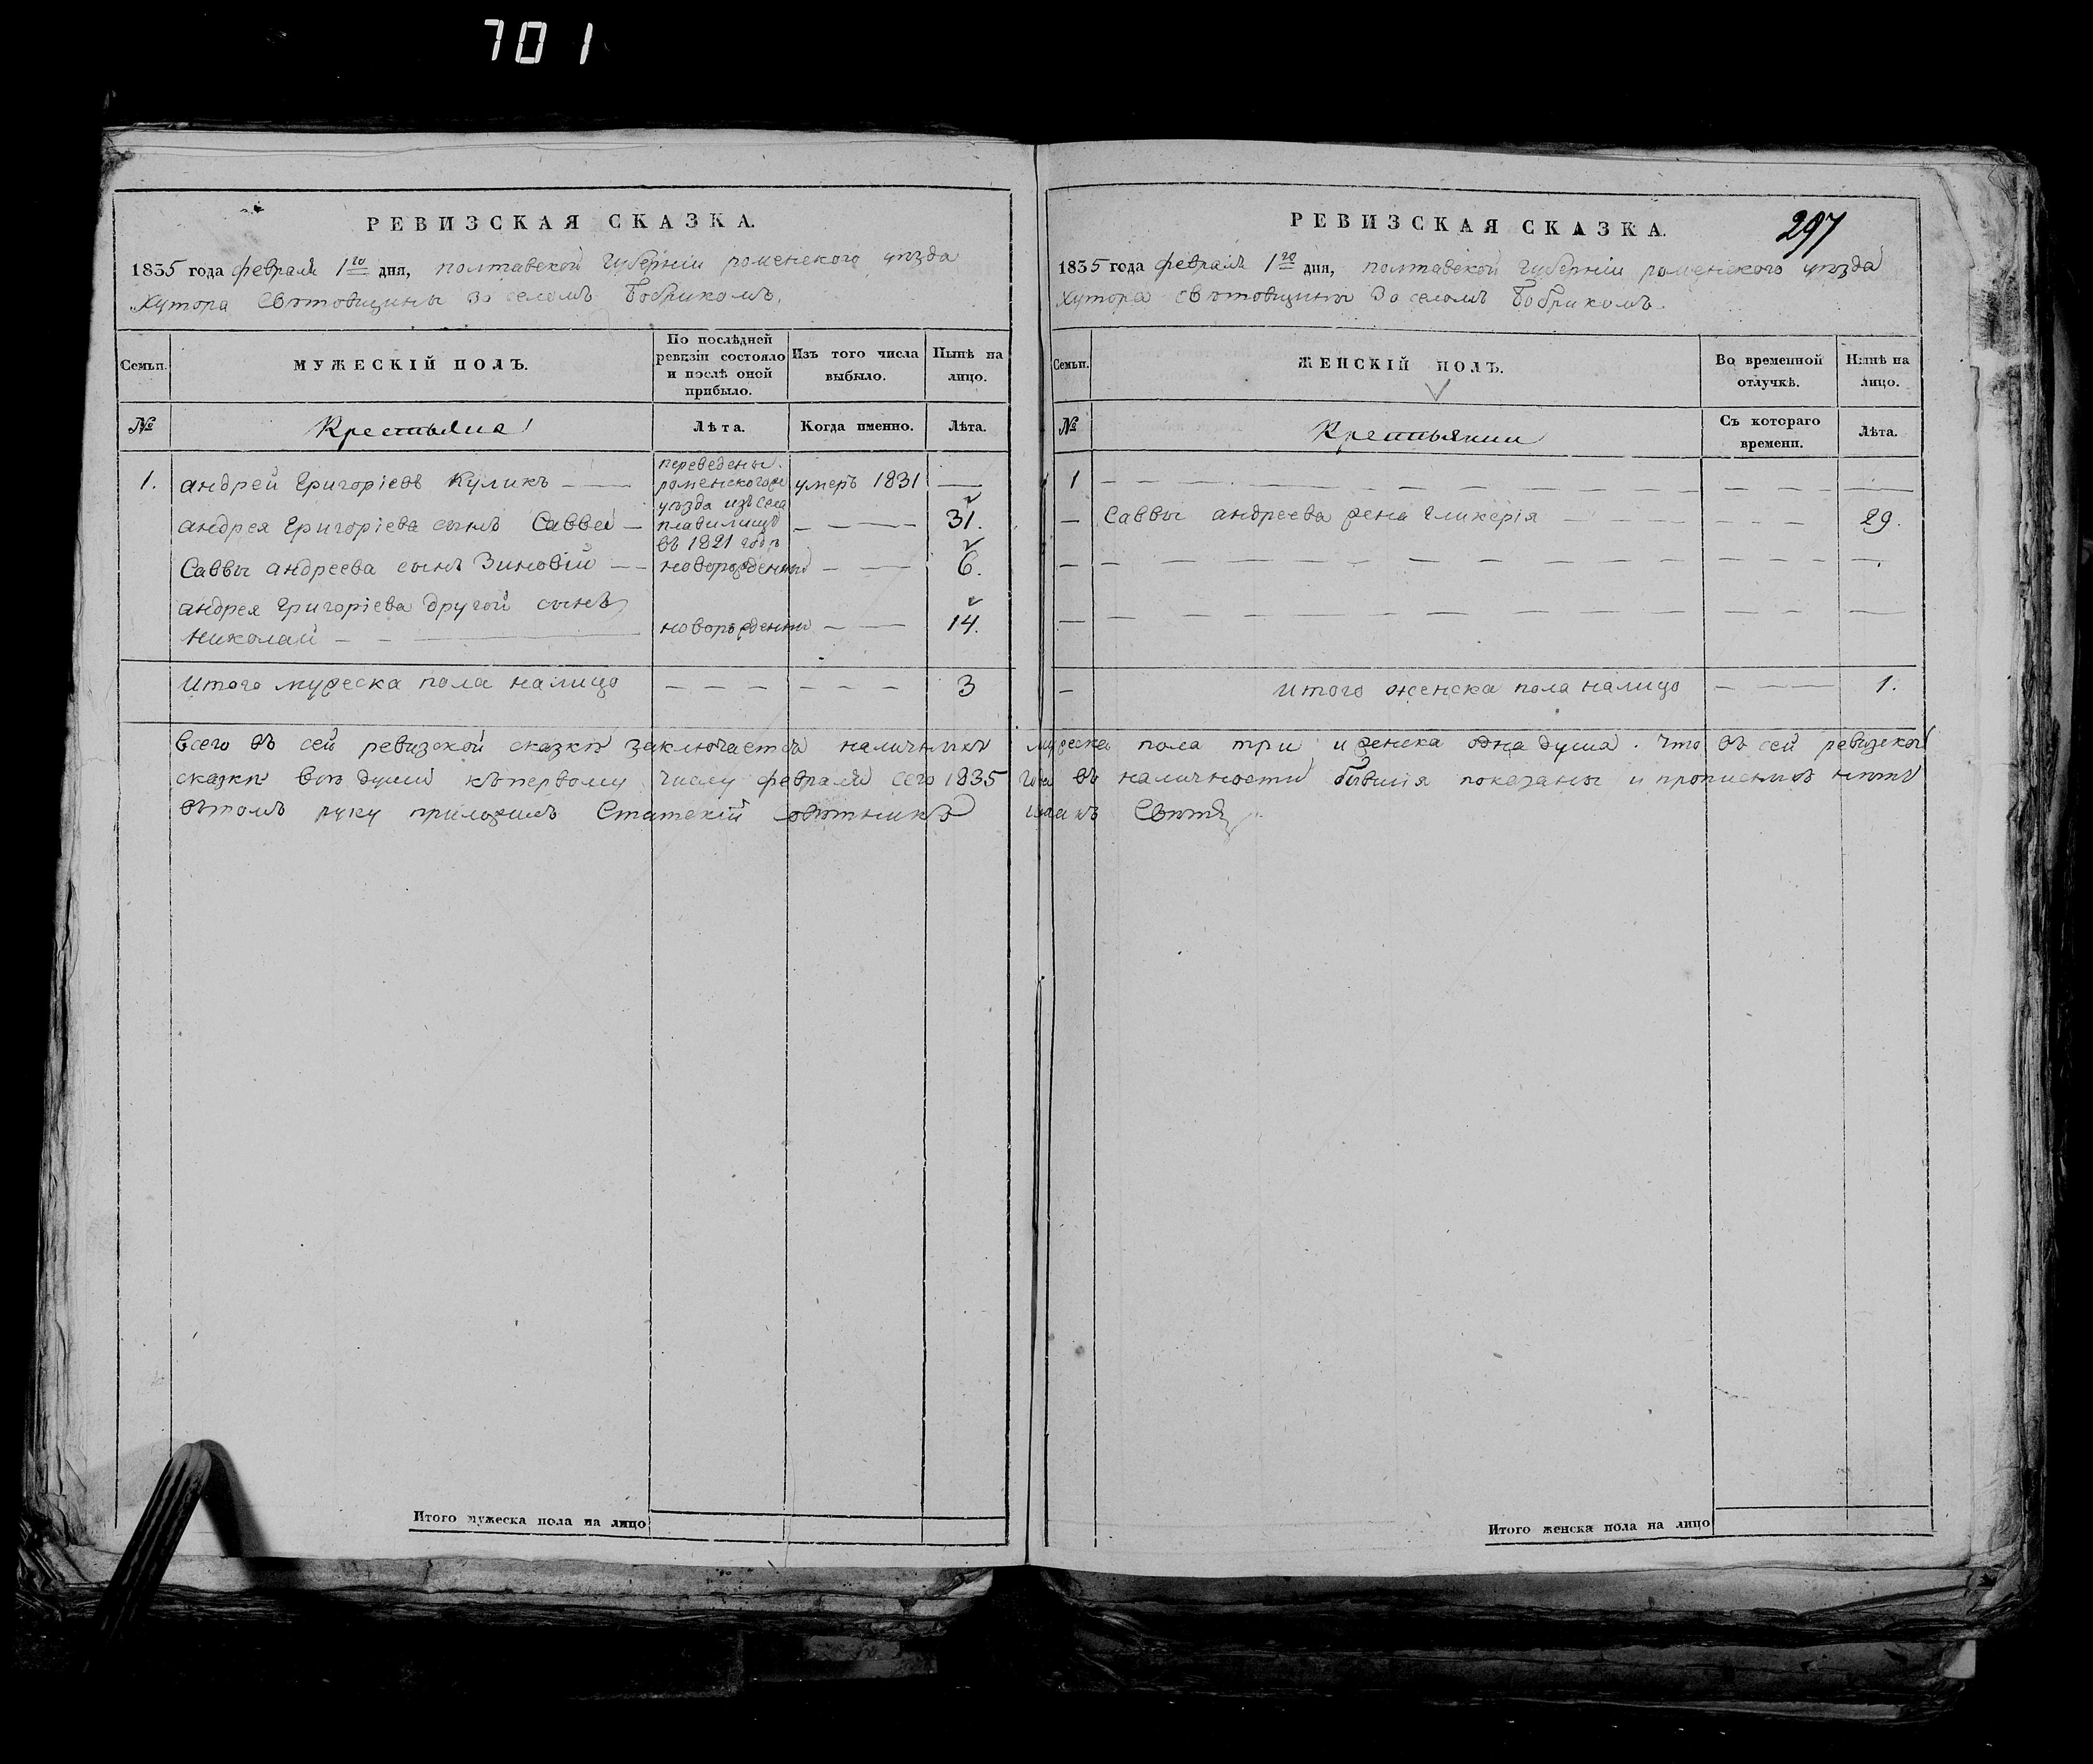 701
РЕВИЗСКАЯ СКАЗКА.
1835 года февраля 1го дня, полтавской Губерніи роменского уѣзда
Хутора Свѣтовщины За селомъ Бобрикомъ.
Семьи.
МУЖЕСКІЙ ПОЛЪ.
По послѣдней ревизіи состояло и послѣ оной прибыло.
Изъ того числа выбыло.
Нынѣ на лицо.
№
Крестьяна
Лѣта.
Когда именно.
Лѣта.
1. андрей Григоріевъ Куликъ — переведены роменского умеръ 1831 —
уѣзда изъ села
андрея Григоріева сынъ Саввей — плавилищъ — — — 31.
въ 1821 годѣ
Саввы андреева сынъ Зиновій — — новорожденный — — 6.
андрея Григоріева другой сынъ
Николай — — новорожденный — — 14.
Итого мужеска пола налицо — — — — — — 3
РЕВИЗСКАЯ СКАЗКА.
297
1835 года февраля 1го дня, полтавской Губерніи роменского уѣзда
Хутора свѣтовщины За селомъ Бобрикомъ.
Семьи.
ЖЕНСКІЙ ПОЛЪ.
Во временной отлучкѣ.
Нынѣ на лицо.
№
Крестьянки
Съ котораго времени.
Лѣта.
1 — — — — — — — —
— Саввы андреева жена Гликерія — — — — 29.
— — — — — — — —
— — — — — — — —
— Итого женска пола налицо — — 1.
всего въ сей ревизской сказкѣ заключается наличныхъ мужеска пола три и женска одна душа. Что въ сей ревизской
сказкѣ всѣ души къ первому числу февраля сего 1835 года въ наличности бывшія показаны и прописныхъ нѣтъ
вътомъ руку приложилъ Статскій совѣтникъ
Итого мужеска пола на лицо
Итого женска пола на лицо